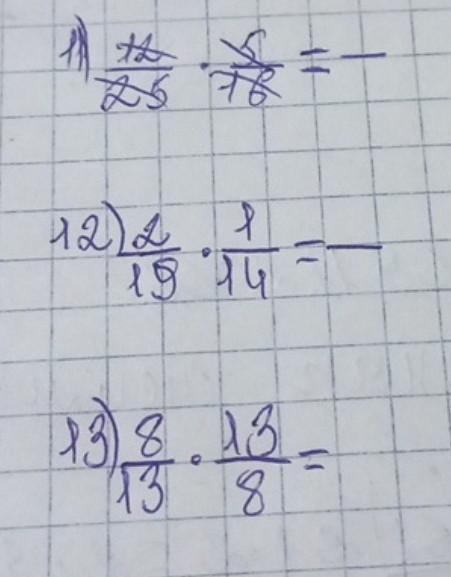 11) 12/25 · 5/16 = —
12) 2/19 · 1/14 = —
13) 8/13 · 13/8 =